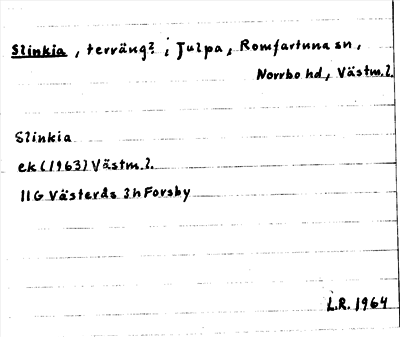 Slinkia, terräng? i Julpa, Romfartuna sn,
Norrbo hd, Västm.l.
Slinkia
ek (1963) Västm.l.
11G Västerås 3h Forsby
L.R. 1964